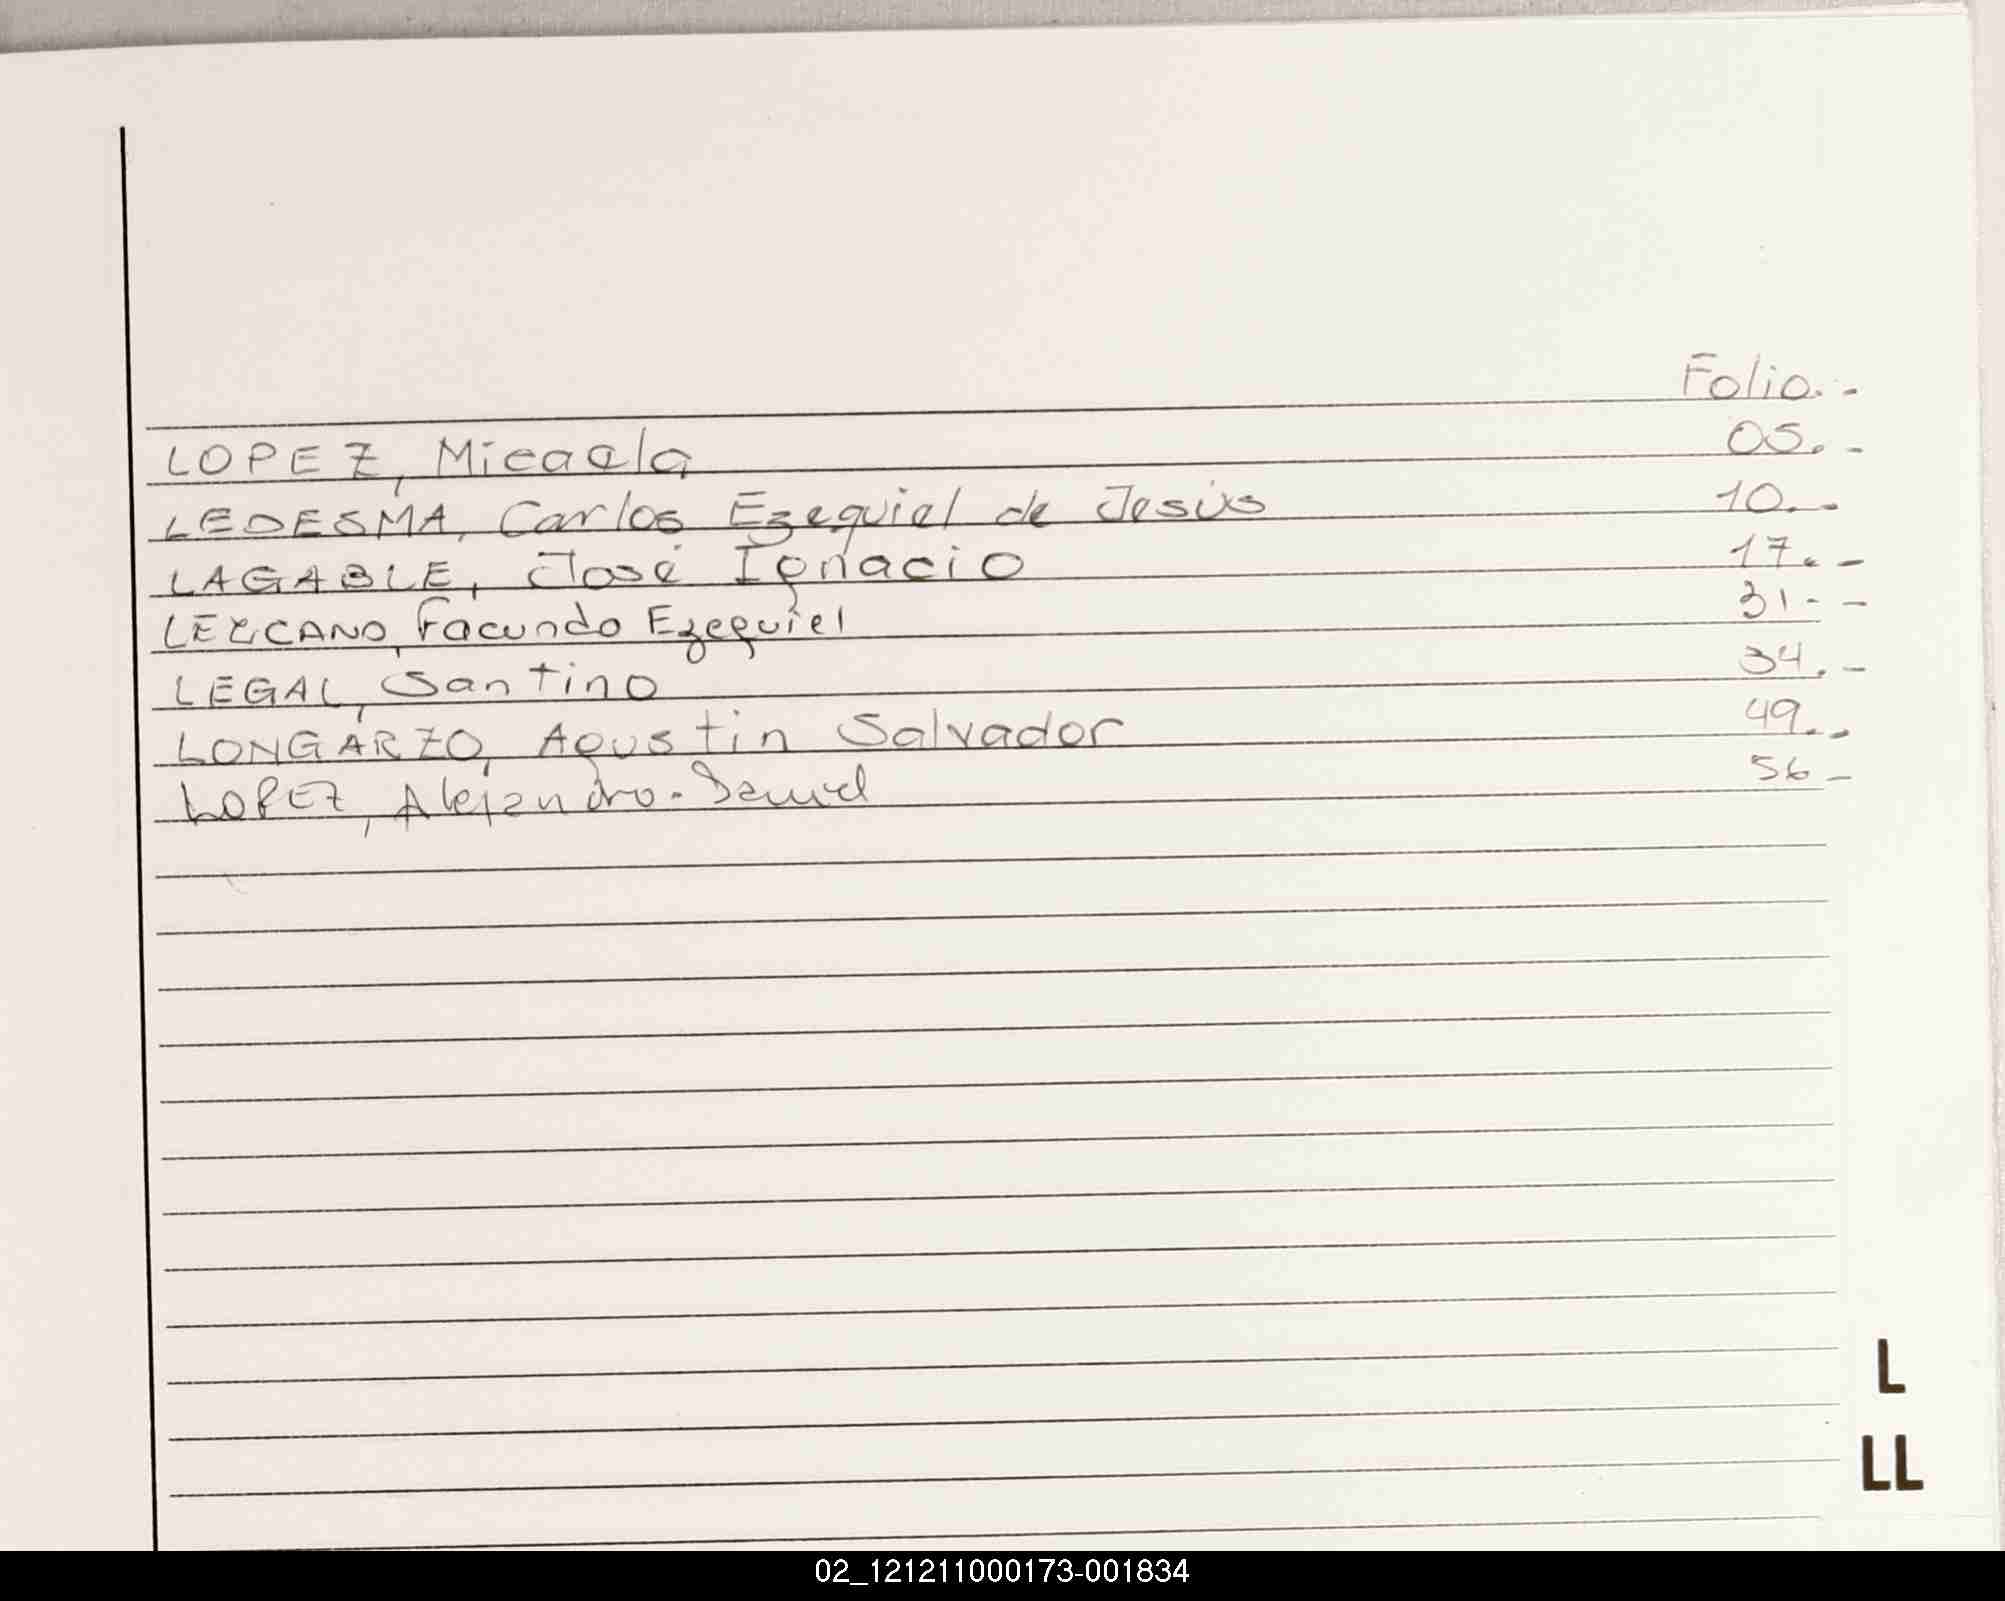 Folio.-
LOPEZ, Micaela 05.-
LEDESMA, Carlos Ezequiel de Jesús 10.-
LAGABLE, José Ignacio 17.-
LEZCANO, Facundo Ezequiel 31.-
LEGAL, Santino 34.-
LONGARZO, Agustin Salvador 49.-
LOPEZ, Alejandro Daniel 56-
L
LL
02_121211000173-001834